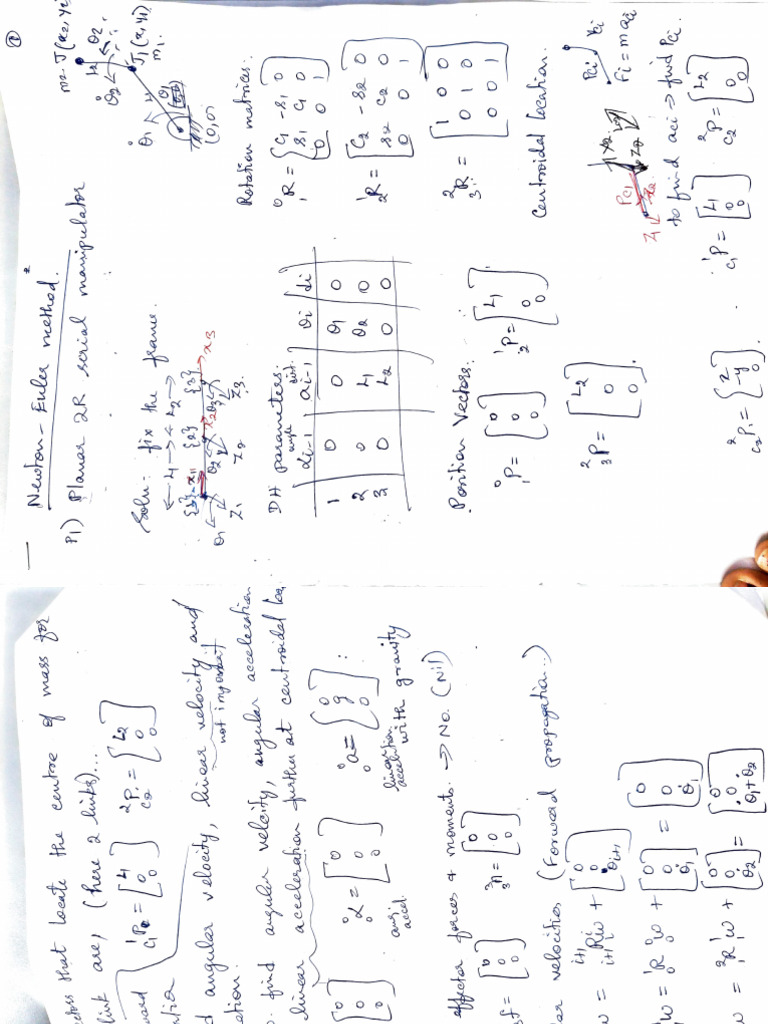 ①
Newton-Euler method.
P1) Planar 2R serial manipulator
Soln: fix the frame.
← L1 → ← L2 →
{2} {3}
x3
θ1 θ2
Z1 Z2 Z3
m2. J(x2, y2)
θ2
L2
J1(x1, y1)
m1.
θ1 L1
(0,0)
DH parameters:
angle dist
αi-1 ai-1 θi di
1 0 0 θ1 0
2 0 L1 θ2 0
3 0 L2 0 0
Rotation matrices:
⁰₁R = [C1 -S1 0
S1 C1 0
0 0 1]
¹₂R = [C2 -S2 0
S2 C2 0
0 0 1]
²₃R = [1 0 0
0 1 0
0 0 1]
Position Vectors:
⁰₁P = [0
0
0]
¹₂P = [L1
0
0]
²₃P = [L2
0
0].
Centroidal location.
Pc1
Fi = m aci
to find aci ⇒ find Pci.
¹c1P = [L1
0
0]
²c2P = [L2
0
0]
²c2P1 = [x
y
0].
that locate the centre of mass for
link are, (here 2 links)...
¹c1P = [L1
0
0]
²c2P1 = [L2
0
0]
angular velocity, linear velocity and
not important
find angular velocity, angular acceleration
linear acceleration further at centroidal loc
[0
0
0]
⁰α = [0
0
0]
ang accel.
⁰a = [0
g
0] :
linear acceleration with gravity
effector forces & moments. → No. (Nil)
f = [0
0
0]
³₃n = [0
0
0]
velocities (Forward propagation..)
ω = ⁱ⁺¹ᵢR ⁱᵢω + [0
0
θ̇i+1]
ω = ¹₀R ⁰₀ω + [0
0
θ̇1] = [0
0
θ̇1]
ω = ²₁R ¹₁ω + [0
0
θ̇2] = [0
0
θ̇1+θ̇2]